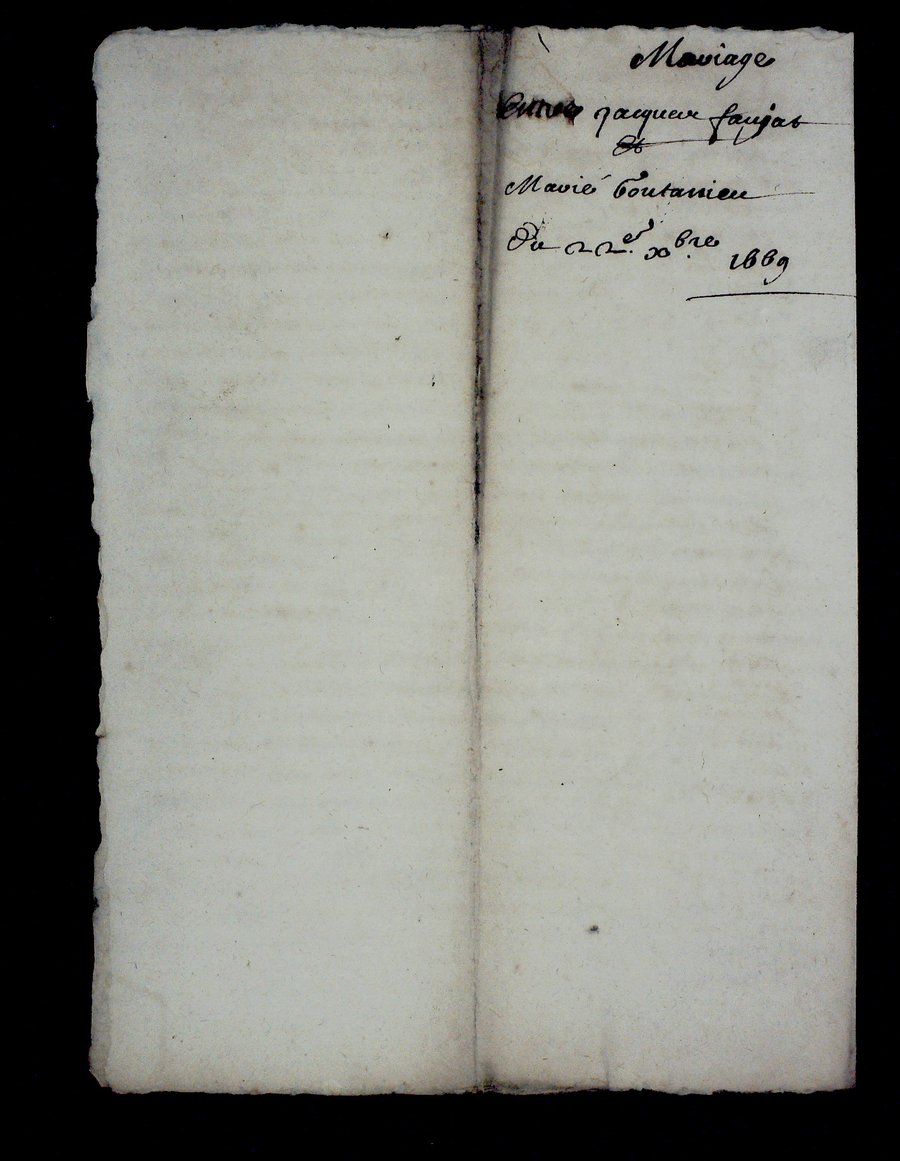 Mariage
Entre jacques faujas
Et
Marie boutarieu
Du 22e. xbre. 1669